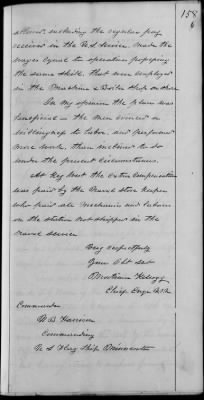 158
6
allowed, including the regular pay
received in the U.S. Service, made the
wages equal to operatives possessing
the same skill, that were employed
in the Machine & Boiler Shop on shore
In my opinion the plan was
beneficial – the men evinced a
willingness to labor, and performed
more work, than inclined to do
under the present circumstances.
At Key West the extra compensation
was paid by the Naval Store Keeper
who paid all Mechanics and laborers
on the station not shipped in the
Naval Service
Very respectfully
Your Obt Svt
Mortimer Kellogg
Chief Engr U.S.N.
Commander
Commanding
U S Flag Ship Minnesota